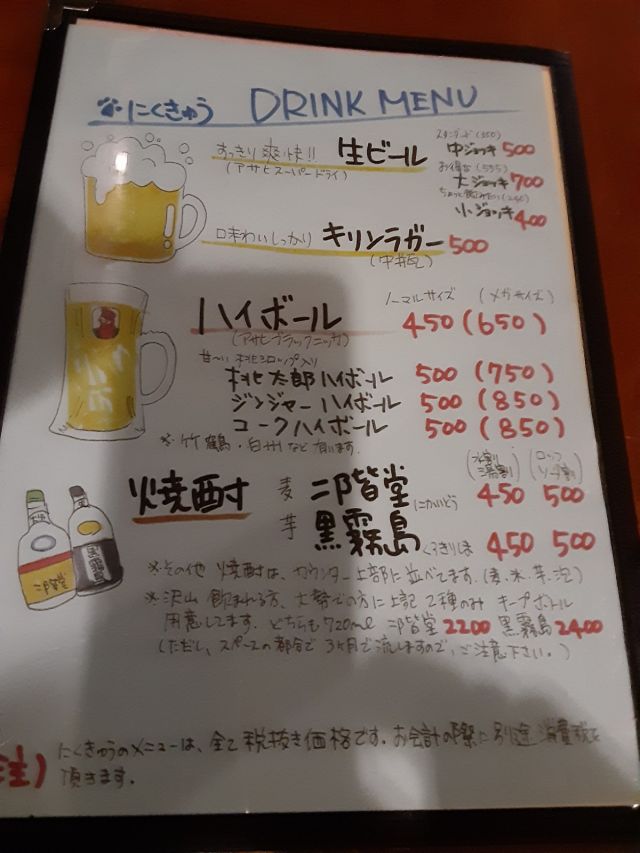 にくきゅう DRINK MENU
すっきり爽快!! 生ビール
(アサヒスーパードライ)
スタンダード(350)
中ジョッキ 500
お得な(535)
大ジョッキ 700
ちょっと飲みたい(240)
小ジョッキ 400
味わいしっかり キリンラガー 500
(中瓶)
ノーマルサイズ (メガサイズ)
ハイボール 450 (650)
(アサヒブラックニッカ)
甘〜い 桃シロップ入り
桃太郎ハイボール 500 (750)
ジンジャーハイボール 500 (850)
コークハイボール 500 (850)
※竹鶴・白州など有ります.
(水割り お湯割り) (ロック ソーダ割)
焼酎 麦 二階堂 にかいどう 450 500
芋 黒霧島 くろきりしま 450 500
※その他 焼酎は、カウンター上部に並べてます.(麦.米.芋.泡)
※沢山飲まれる方、大勢での方に上記2種のみ キープボトル
用意してます. どちらも720ml 二階堂 2200 黒霧島 2400
(ただし、スペースの都合で 3ヶ月で流しますので、ご注意下さい。)
注) にくきゅうのメニューは、全て税抜き価格です. お会計の際に別途 消費税を
頂きます.